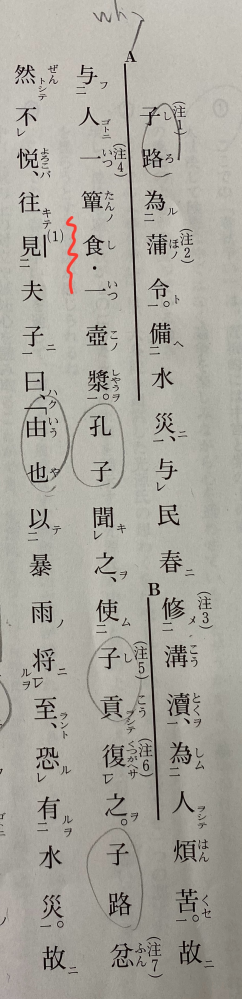 why
A
B
(注1)子路為(注2)蒲令。備水災、与民春(注3)修溝瀆、為人煩苦。故
与人(注4)一簞食・一壺漿。孔子聞之、使(注5)子貢(注6)復之。子路(注7)忿
然不悦、往見(1)夫子曰、「由也以暴雨将至、恐有水災。故